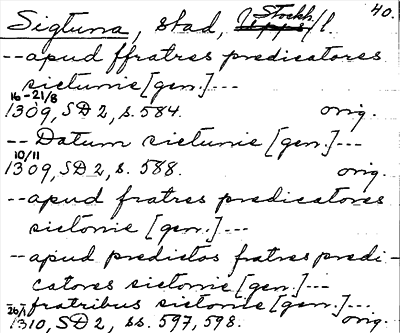 40.
Sigtuna, stad, Upps Stockh./l.
--apud ffratres predicatores
sictunie [gen.]---
16-21/8
1309, SD 2, s. 584. orig.
-- Datum sictunie [gen.]---
10/11
1309, SD 2, s. 588. orig.
--apud fratres predicatores
sictonie [gen.]---
--apud predictos fratres predi-
catores sictonie [gen.]---
--fratribus sictonie [gen.]---
26/1
1310, SD 2, ss. 597, 598. orig.